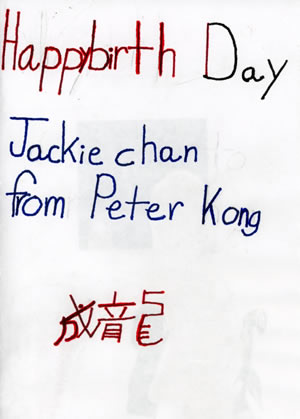 Happybirth Day
Jackie chan
from Peter Kong
成龍